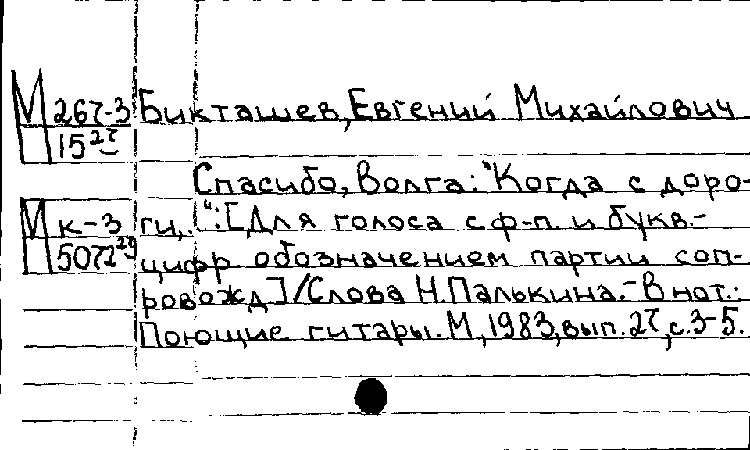 М 267-3 Бикташев, Евгений Михайлович
15 27
Спасибо, Волга: "Когда с доро-
М к-3 ги,.": [Для голоса с ф-п. и букв.-
5072 29 цифр обозначением партии соп-
ровожд]/Слова Н.Палькина.-В нот.:
Поющие гитары. М,1983,вып.27,с.3-5.